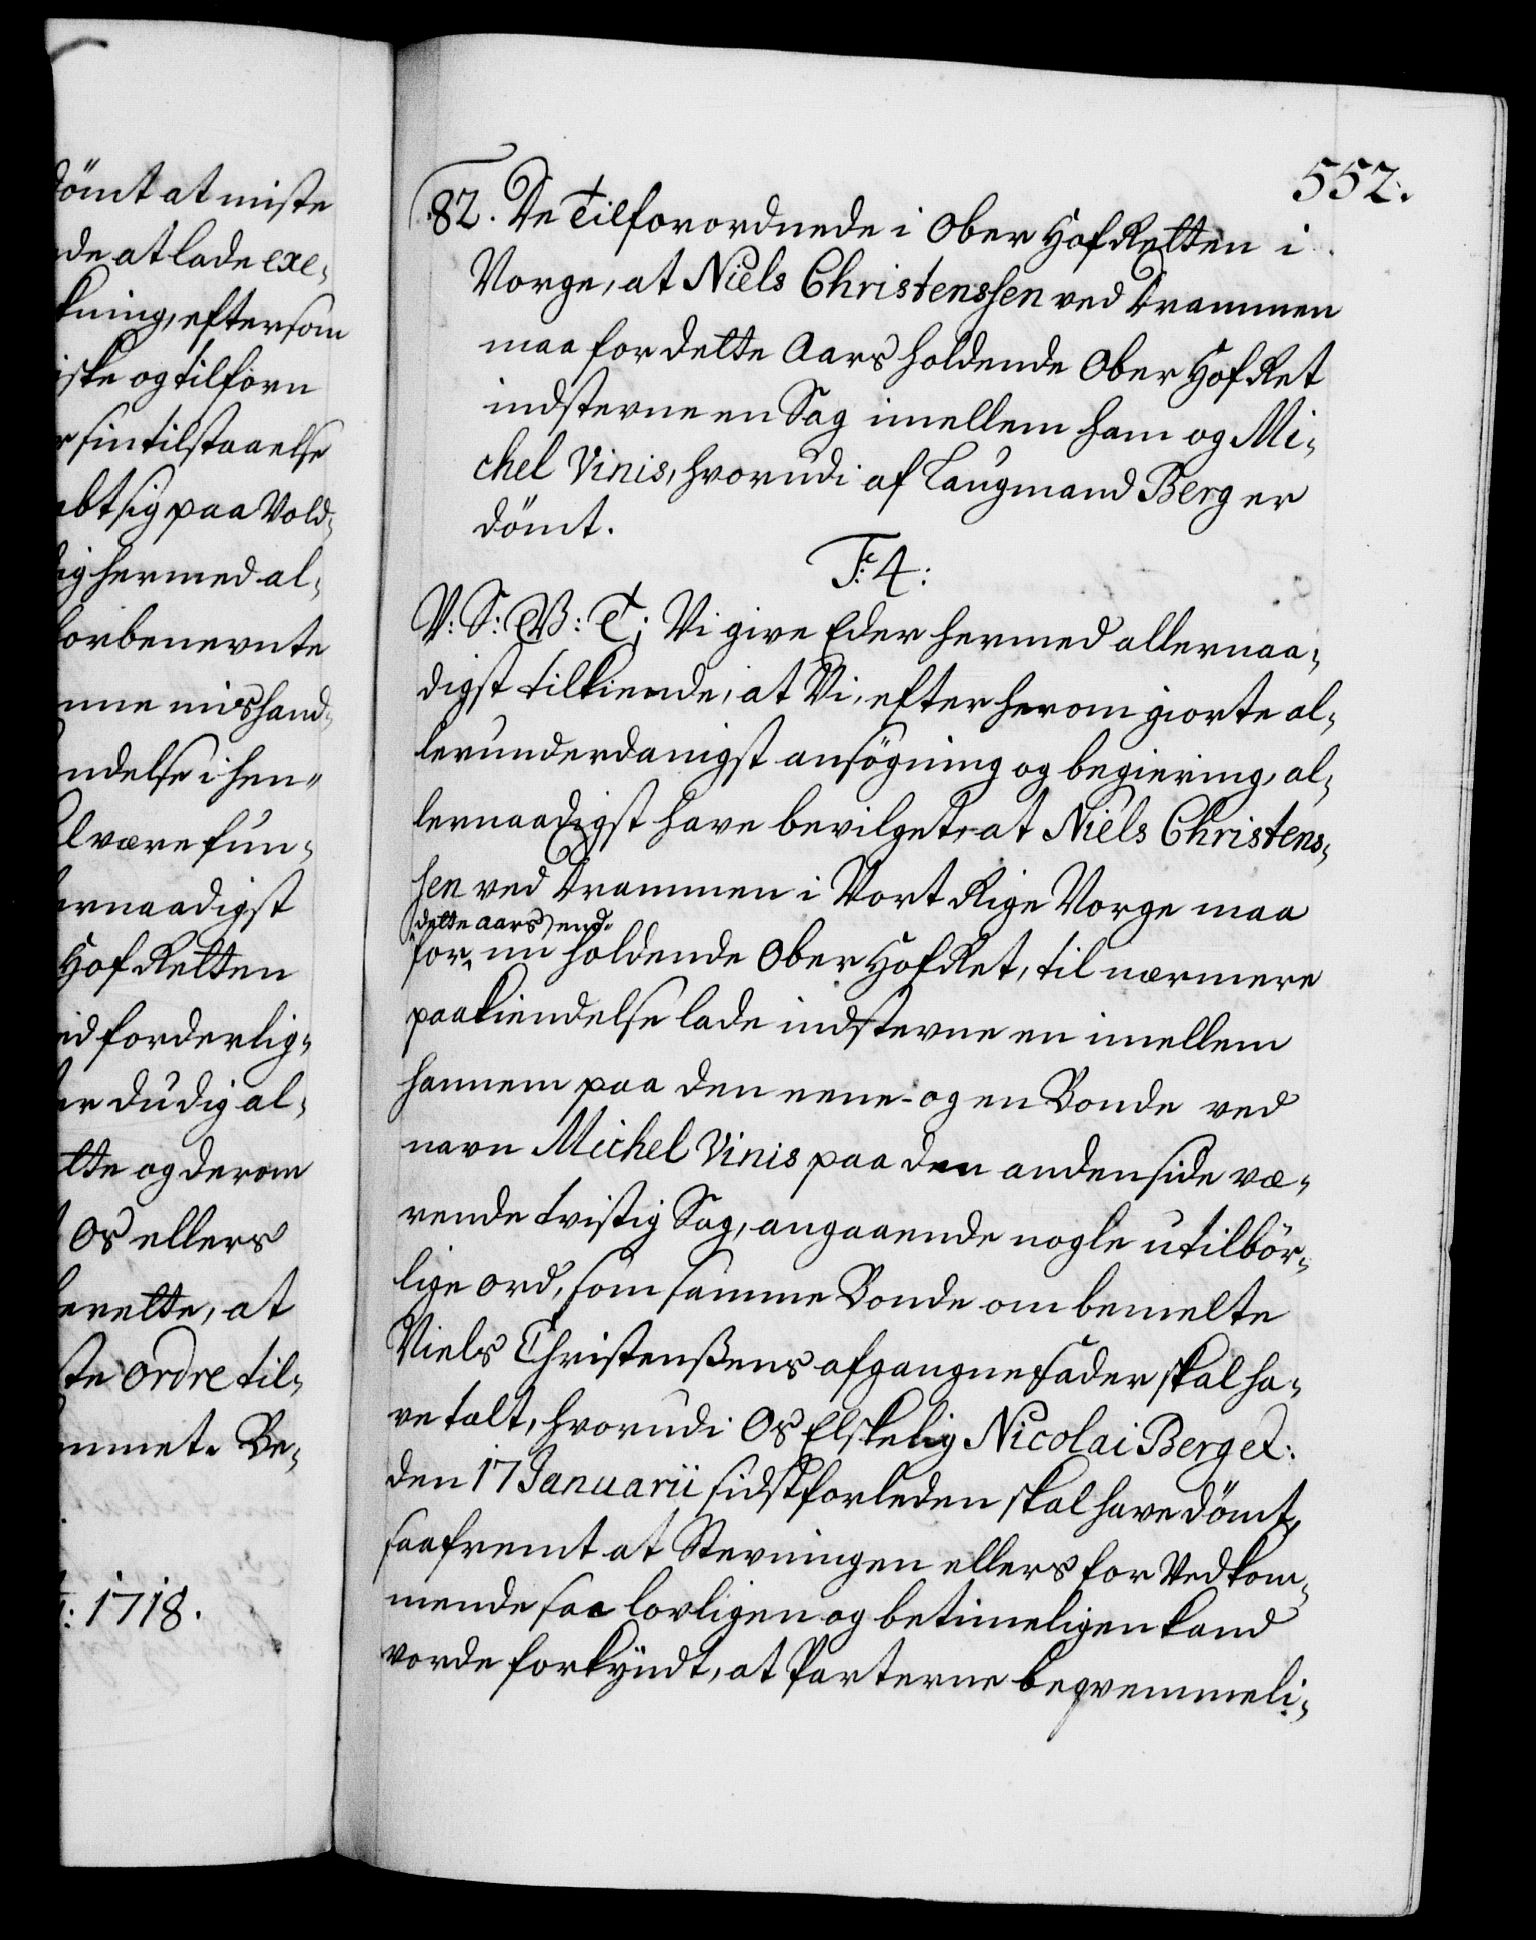 dömt at miste
de at lade exe-
kning, eftersom
iske og tilforn
r sin tilstaaelse
bt sig paa Vold-
ig hermed al-
forbenevnte
nne mishand-
ndelse i hen-
l være fun-
ernaadigst
Hof Retten
id forderlig-
er du dig al-
tte og derom
Os ellers
erette, at
ste ordre til-
mmet. Be-
: 1718.
552.
82. De Tilforordnede i Ober Hof Retten i
Norge, at Niels Christenssen ved Drammen
maa for dette Aars holdende Ober Hof Ret
indstevne en Sag imellem ham og Mi-
chel Vinis, hvorudi af Laugmand Berg er
dömt.
F: 4:
V: S: G: B: T; Vi give Eder hermed allernaa-
digst tilkiende, at Vi, efter herom giorte al-
lerunderdanigst ansögning og begiering, al-
lernaadigst have bevilget, at Niels Christens-
sen ved Drammen i Vort Rige Norge maa
dette aars end-
for nu holdende Ober Hof Ret, til nærmere
paakiendelse lade indstevne en imellem
hannem paa den eene- og en Bonde ved
navn Michel Vinis paa den anden side væ-
rende tvistig Sag, angaaende nogle utilbör-
lige ord, som samme Bonde om bemelte
Niels Christenßens afgangne Fader skal ha-
ve talt, hvorudi Os Elskelig Nicolai Berg etc:
den 17 Januarii sidstforleden skal have dömt,
saafremt at Stevningen ellers for Vedkom-
mende saa lovligen og betimeligen kand
vorde forkyndt, at Parterne beqvemmeli-